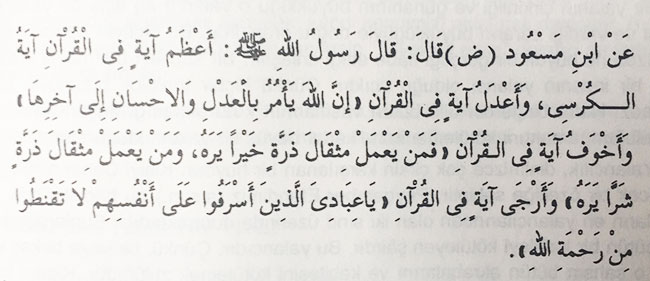 عَنْ ابْنِ مَسْعُود (ض) قَالَ: قَالَ رَسُولُ الله ﷺ: أَعْظَمُ آيَةٍ فِى الْقُرْآنِ آيَةُ
الْكُرْسِى، وَأَعْدَلُ آيَةٍ فِى الْقُرْآنِ «إِنَّ اللهَ يَأْمُرُ بِالْعَدْلِ وَالاحْسَانِ إِلَى آخِرِهَا»
وَأَخْوَفُ آيَةٍ فِى الْقُرْآنِ «فَمَنْ يَعْمَلْ مِثْقَالَ ذَرَّةٍ خَيْراً يَرَهُ، وَمَنْ يَعْمَلْ مِثْقَالَ ذَرَّةٍ
شَرًّا يَرَهُ» وَأَرْجَى آيَةٍ فِى الْقُرْآنِ «يَاعِبَادِى الَّذِينَ أَسْرَفُوا عَلَى أَنْفُسِهِمْ لَا تَقْنَطُوا
مِنْ رَحْمَةِ اللهِ».